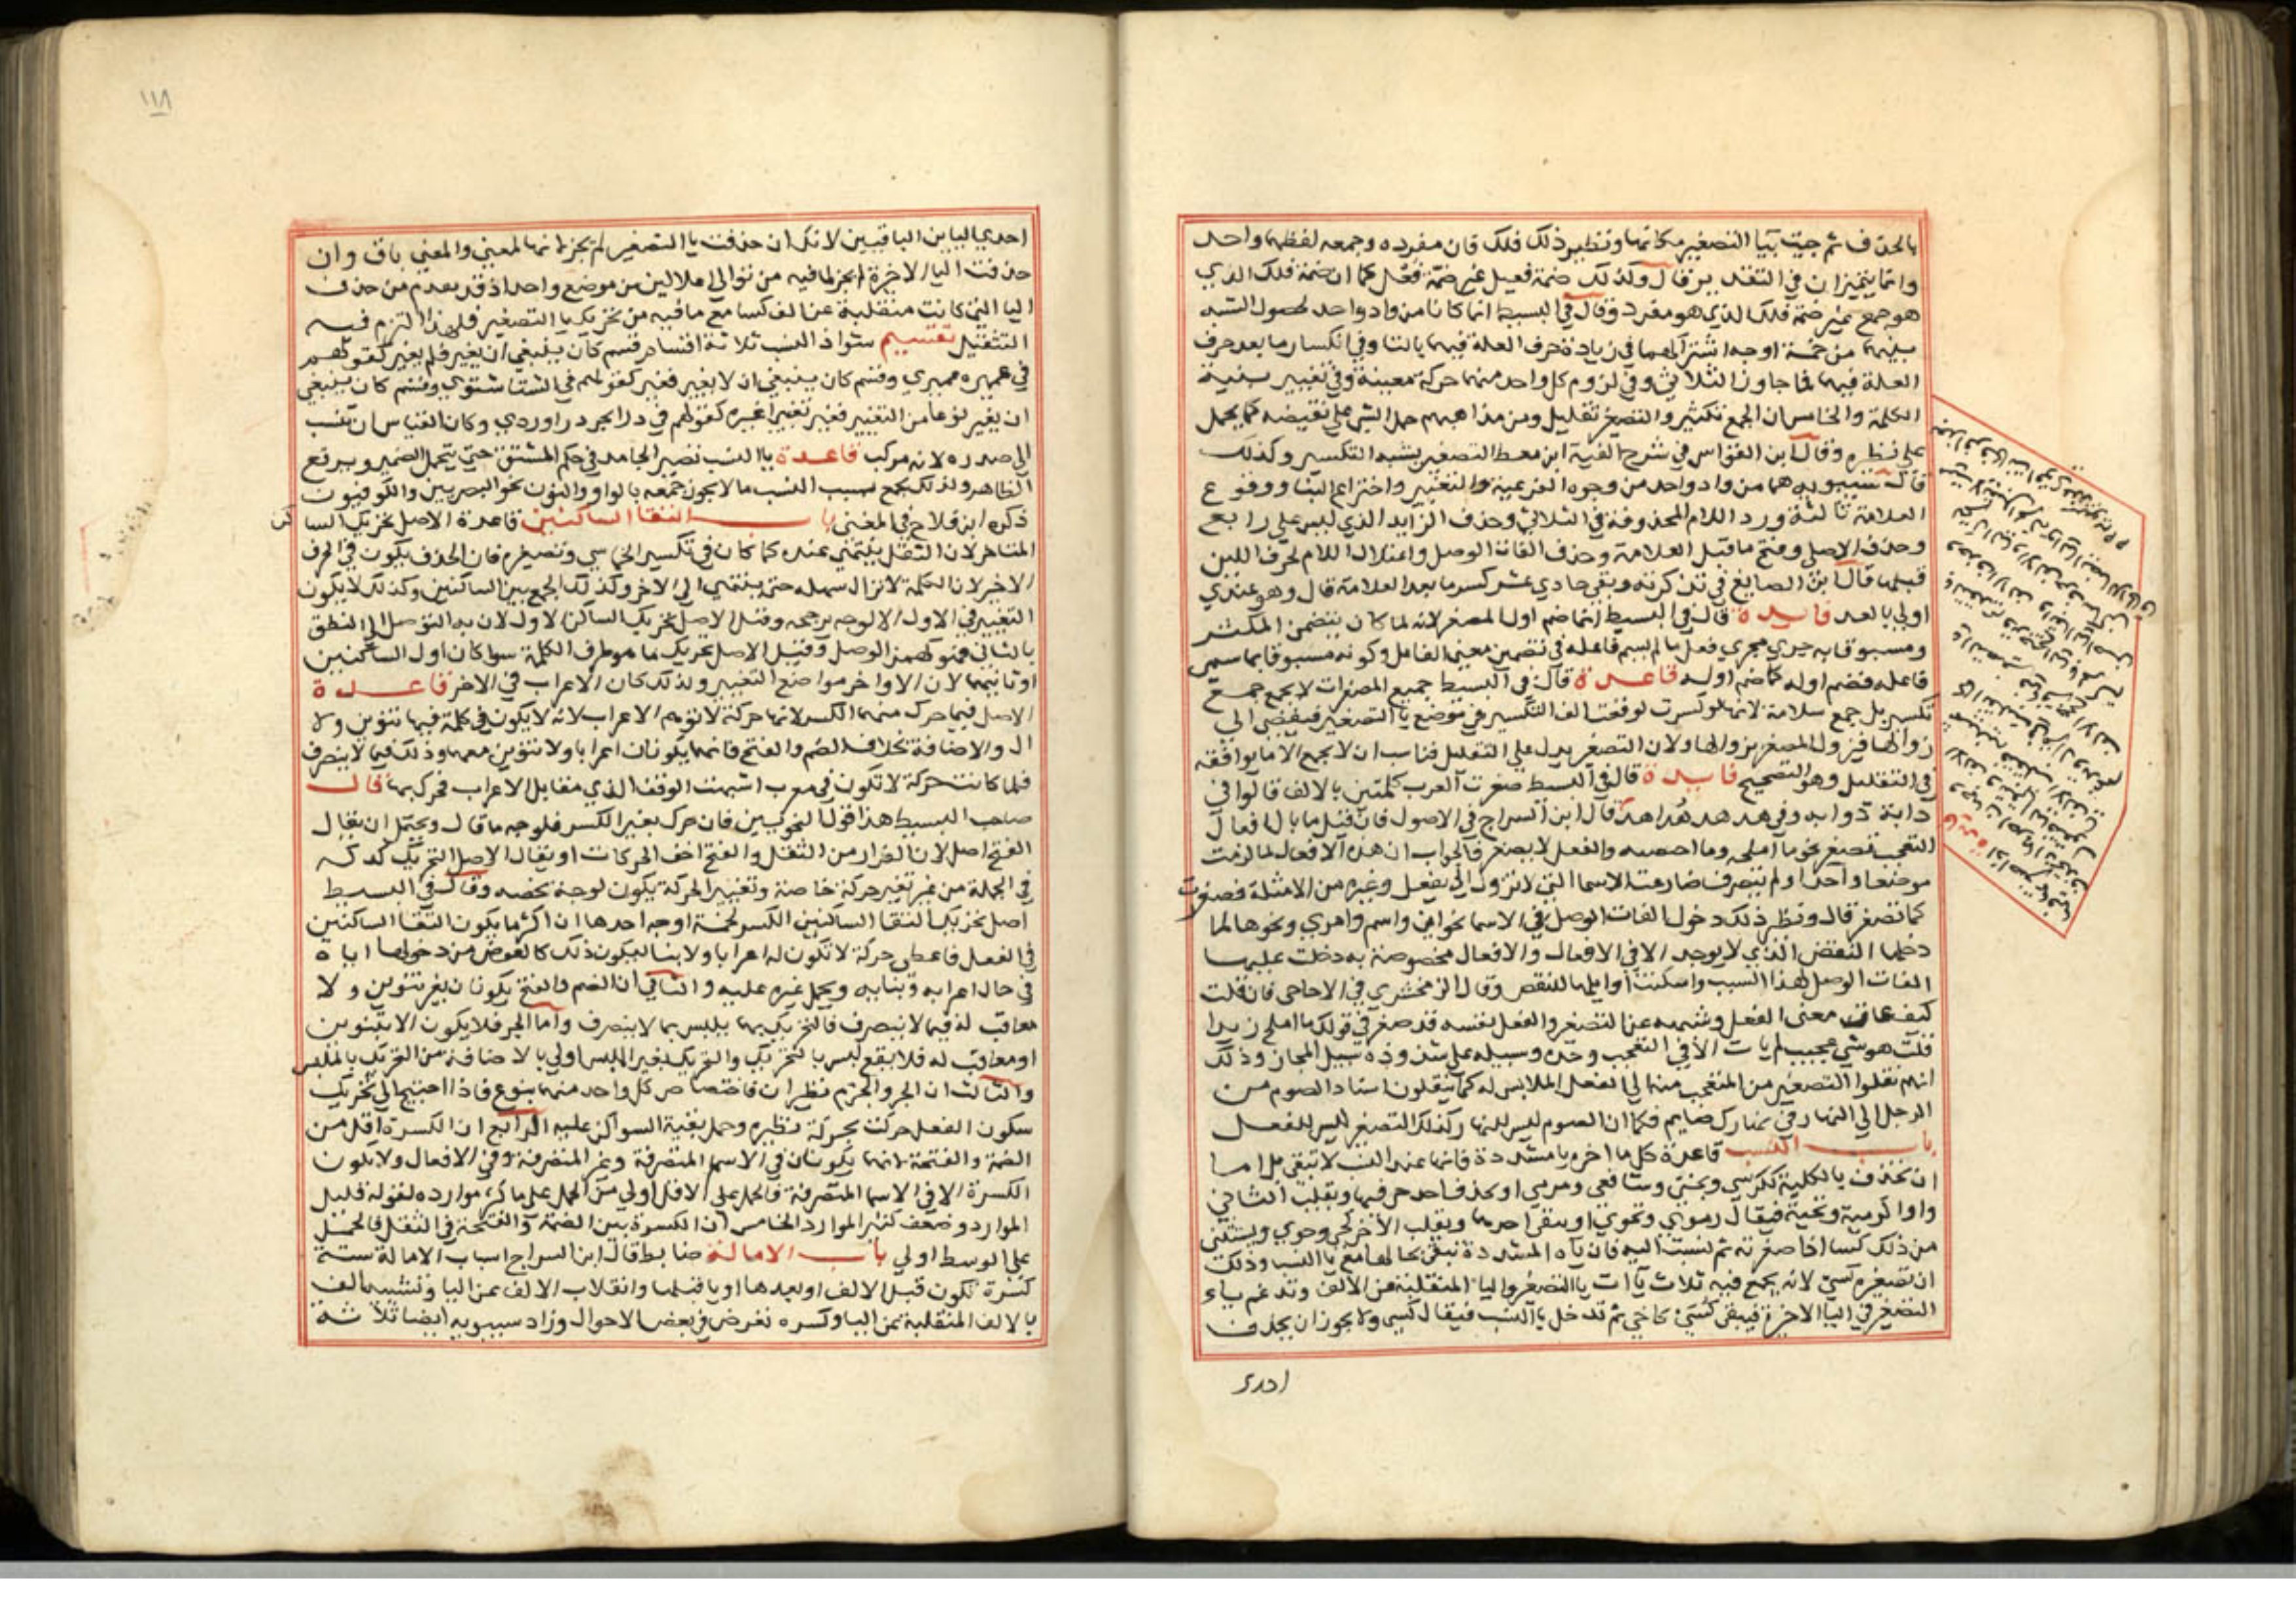 بالحذف ثم جيت بيا التصغير مكانها ونظير ذلك فلك فان مفرده وجمعه لفظهما واحد
وانما يتميزان في التقدير قال وكذلك ضمة فعيل غير ضمة فعل كما ان ضمة فلك الذي
هو جمع غير ضمة فلك الذي هو مفرد وقال في البسيط انما كانا من واد واحد لحصول الشبه
بينهما من خمسة اوجه اشتراكهما في زيادة حرف العلة فيهما ثالثا وفي انكسار ما بعد حرف
العلة فيهما فيما جاوز الثلاثي وفي لزوم كل واحد منهما حركة معينة وفي تغيير بنية
الكلمة والخامس ان الجمع تكثير والتصغير تقليل ومن مذاهبهم حمل الشي على نقيضه كما يحمل
على نظيره وقال ابن القواس في شرح الفية ابن معط التصغير يشبه التكسير وكذلك
قال سيبويه هما من واد واحد من وجوه الفرعية والتغيير واختراع البنا ووقوع
العلامة ثالثة ورد اللام المحذوفة في الثلاثي وحذف الزايد الذي ليس على رابع
وحذف الاصلي وفتح ما قبل العلامة وحذف الفات الوصل واعتلال اللام لحرف اللين
قبلها قال ابن الصايغ في تذكرته وبقي حادي عشر كسر ما بعد العلامة قال وهو عندي
اولى بالعد فايدة قال في البسيط انما ضم اول المصغر لانه لما كان يتضمن المكبر
ومسبوقا به جرى مجرى فعل ما لم يسم فاعله في تضمن معنى الفاعل وكونه مسبوقا بما سمي
فاعله فضم اوله كما ضم اوله قاعدة قال في البسيط جميع المصغرات لا يجمع جمع
تكسير بل جمع سلامة لانها لو كسرت لوقعت الف التكسير في موضع يا التصغير فيفضي الى
زوالها فيزول المصغر بزوالها ولان التصغير يدل على التقليل فناسب ان لا يجمع الا ما يوافقه
في التقليل وهو التصحيح فايدة قال في البسيط صغرت العرب كلمتين بالالف قالوا في
دابة دوابه وفي هدهد هداهد قال ابن السراج في الاصول فان قيل ما بال افعال
التعجب تصغر نحو ما املحه وما احيسنه والفعل لا يصغر فالجواب ان هذه الافعال لما لزمت
موضعا واحدا ولم تتصرف ضارعت الاسما التي لا تزول الى يفعل وغيره من الامثلة فصغرت
كما تصغر قال ونظير ذلك دخول الفات الوصل في الاسما نحو ابن واسم وامري ونحوها لما
دخلها النقص الذي لا يوجد الا في الافعال والافعال مخصوصة به دخلت عليها
الفات الوصل لهذا السبب واسكنت اوايلها للنقص وقال الزمخشري في الاحاجي فان قلت
كيف عاق معنى الفعل وشبهه عن التصغير والفعل بنفسه قد صغر في قولك ما املح زيدا
قلت هو شي عجيب لم يات الا في التعجب وحده وسبيله على شذوذه سبيل المجاز وذلك
انهم نقلوا التصغير من المتعجب منه الى الفعل الملابس له كما ينقلون اسناد الصوم من
الرجل الى النهار في نهارك صايم فكما ان الصوم ليس للنهار كذلك التصغير ليس للفعل
باب النسب قاعدة كل ما اخره يا مشددة فانها عند النسب لا تبقى بل اما
ان تحذف بالكلية ككرسي وبختي وشافعي ومرمي او يحذف احد حرفيها ويقلب الثاني
واوا كرمية وتحية فيقال رموي وتحوي او يبقى احدهما ويقلب الاخر كحي وحيوي ويستثنى
من ذلك كسا اذا صغرته ثم نسبت اليه فان ياه المشددة تبقى بحالها مع يا النسب وذلك
ان تصغيره كسي لانه يجمع فيه ثلاث يآات يا التصغير واليا المنقلبة عن الالف وتدغم ياء
التصغير في اليا الاخرة فيبقى كسي كاخي ثم تدخل يا النسب فيقال كسيي ولا يجوز ان يحذف
احدى
١١٨
احدي اليا ين الباقيتين لانك ان حذفت يا التصغير لم يجز لانها لمعنى والمعنى باق وان
حذفت اليا الاخيرة لم يجز لما فيه من توالي اعلالين من موضع واحد اذ قد تقدم من حذف
اليا التي كانت منقلبة عن الف كسا مع ما فيه من تحريك يا التصغير فلهذا التزم فيه
التثقيل تقسيم شواذ النسب ثلاثة اقسام قسم كان ينبغي ان يغير فلم يغير كقولهم
في عميره عميري وقسم كان ينبغي ان لا يغير فغير كقولهم في الشتا شتوي وقسم كان ينبغي
ان يغير نوعا من التغيير فغير تغييرا غيره كقولهم في درابجرد دراوردي وكان القياس ان ينسب
الى صدره لانه مركب قاعدة يا النسب تصير الجامد في حكم المشتق حتى يتحمل الضمير ويرفع
الظاهر ولذلك يجمع بسبب النسب ما لا يجوز جمعه بالواو والنون نحو البصريين والكوفيون
ذكره ابن فلاح في المغنى باب التقا الساكنين قاعدة الاصل تحريك الساكن
المتاخر لان الثقل ينتهي عنده كما كان في تكسير الخماسي وتصغيره فان الحذف يكون في الحرف
الاخير لان الكلمة لا تزال سهلة حتى ينتهي الى الاخر وكذلك الجمع بين الساكنين وكذلك لا يكون
التغيير في الاول الا لوجه يرجحه وقيل الاصل تحريك الساكن الاول لان به التوصل الى النطق
بالثاني فهو كهمز الوصل وقيل الاصل تحريك ما هو طرف الكلمة سوا كان اول الساكنين
او ثانيهما لان الاواخر مواضع التغيير ولذلك كان الاعراب في الاخر قاعدة
الاصل فيما حرك منهما الكسر لانها حركة لا توهم الاعراب لانه لا يكون في كلمة فيها تنوين ولا
ال ولا اضافة بخلاف الضم والفتح فانهما يكونان اعرابا ولا تنوين معهما وذلك فيما لا ينصرف
فلما كانت حركة لا تكون في معرب اشبهت الوقف الذي مقابل الاعراب فحرك بها قال
صاحب البسيط هذا قول النحويين فان حرك بغير الكسر فلوجه ما قال ويحتمل ان يقال
الفتح اصل لان الفرار من الثقل والفتح اخف الحركات او يقال الاصل التحريك كدكه
في الجملة من غير تعيين حركة خاصة وتعيين الحركة يكون لوجه يخصه وقال في البسيط
اصل تحريك التقا الساكنين الكسر لخمسة اوجه احدها ان اكثر ما يكون التقا الساكنين
في الفعل فاعطي حركة لا تكون له اعرابا ولا بنا ليكون ذلك كالعوض من دخولها اياه
في حال اعرابه وبنايه ويحمل غيره عليه والثاني ان الضم والفتح يكونان بغير تنوين ولا
معاقب له فيما لا ينصرف فالتحريك بهما يلبس بما لا ينصرف واما الجر فلا يكون الا بتنوين
او معاقب له فلا يقع لبس بالتحريك والتحريك بغير الملبس اولى بالاضافة من التحريك بالملبس
والثالث ان الجر والجزم نظيران فاختصاص كل واحد منهما بنوع فاذا احتيج الى تحريك
سكون الفعل حركت بحركة نظيره وحمل بقية السواكن عليه الرابع ان الكسرة اقل من
الضمة والفتحة لانهما يكونان في الاسما المنصرفة وغير المنصرفة وفي الافعال ولا تكون
الكسرة الا في الاسما المنصرفة فالحمل على الاقل اولى من الحمل على ما كثر موارده لقوله قليل
الموارد وضعف كثير الموارد الخامس ان الكسرة بين الضمة والفتحة في الثقل فالحمل
على الوسط اولى باب الامالة ضابط قال ابن السراج اسباب الامالة ستة
كسرة تكون قبل الالف او بعدها او يا قبلها وانقلاب الالف عن اليا وتشبيه الف
بالالف المنقلبة عن اليا وكسره تعرض في بعض الاحوال وزاد سيبويه ايضا ثلاثة